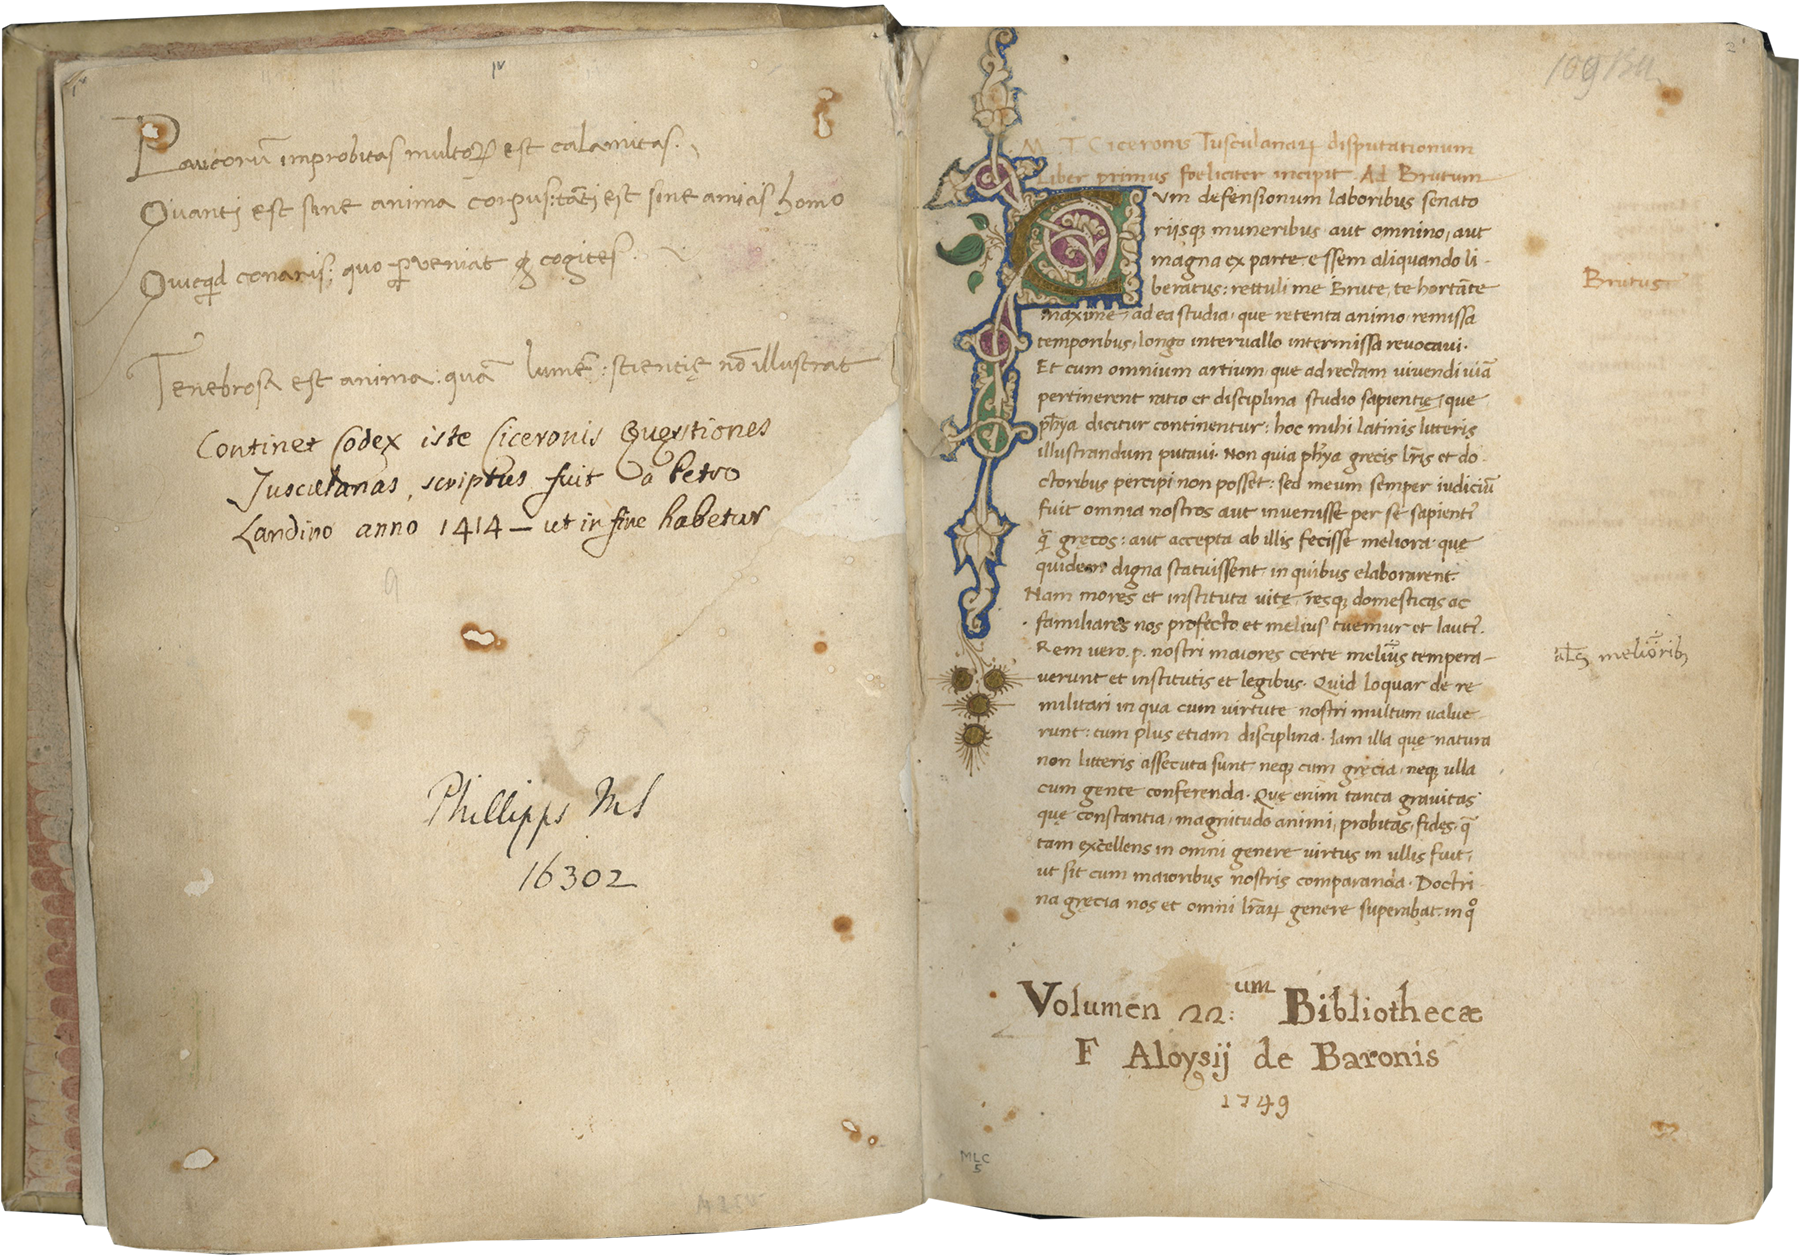 1v
Paucorū improbitas multoꝝ est calamitas.
Quanti est sine anima corpus: tāti est sine amicis homo
Quicqd conaris: quo ꝑveniat cogites.
Tenebrosa est anima: quā lumē: scientię nō illustrat
Continet Codex iste Ciceronis Questiones
Tusculanas, scriptus fuit a Petro
Landino anno 1414 — ut in fine habetur
Phillipps MS
16302
2
109
M. T. Ciceronis Tusculanaꝝ disputationum
Liber primus foeliciter incipit. Ad Brutum
Cum defensionum laboribus senato
riisqꝫ muneribus aut omnino, aut
magna ex parte essem aliquando li-
beratus: rettuli me Brute, te hortāte
Brutus
maxime, ad ea studia, que retenta animo, remissa
temporibus, longo intervallo intermissa revocavi.
Et cum omnium artium, que ad rectam vivendi viā
pertinerent ratio et disciplina studio sapientię, que
ph̄ya dicitur continentur: hoc mihi latinis litteris
illustrandum putavi. Non quia ph̄ya grecis lr̄is et do-
ctoribus percipi non posset: sed meum semper iudiciū
fuit omnia nostros aut invenisse per se sapienti᷒
q̄ gręcos: aut accepta ab illis fecisse meliora, que
quidem digna statuissent in quibus elaborarent.
Nam mores et instituta vitę, resqꝫ domesticas ac
familiares nos profecto et melius tuemur et lauti᷒.
Rem vero .p. nostri maiores certe melius tempera-
al's melioribꝫ
verunt et institutis et legibus. Quid loquar de re
militari in qua cum virtute nostri multum value-
runt: tum plus etiam disciplina. Iam illa que natura
non litteris assecuta sunt, neqꝫ cum gręcia, neqꝫ ulla
cum gente conferenda. Que enim tanta gravitas
que constantia, magnitudo animi, probitas, fides, q̄
tam excellens in omni genere virtus in ullis fuit,
ut sit cum maioribus nostris comparanda. Doctri-
na gręcia nos et omni lr̄aꝝ genere superabat. in qͦ
Volumen 22:um Bibliothecæ
F Aloysij de Baronis
1749
MLC
5